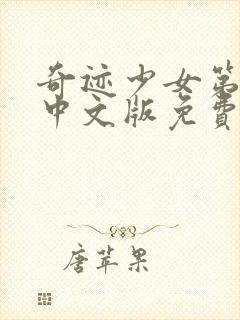 奇迹少女第
中文版免费
唐苹果